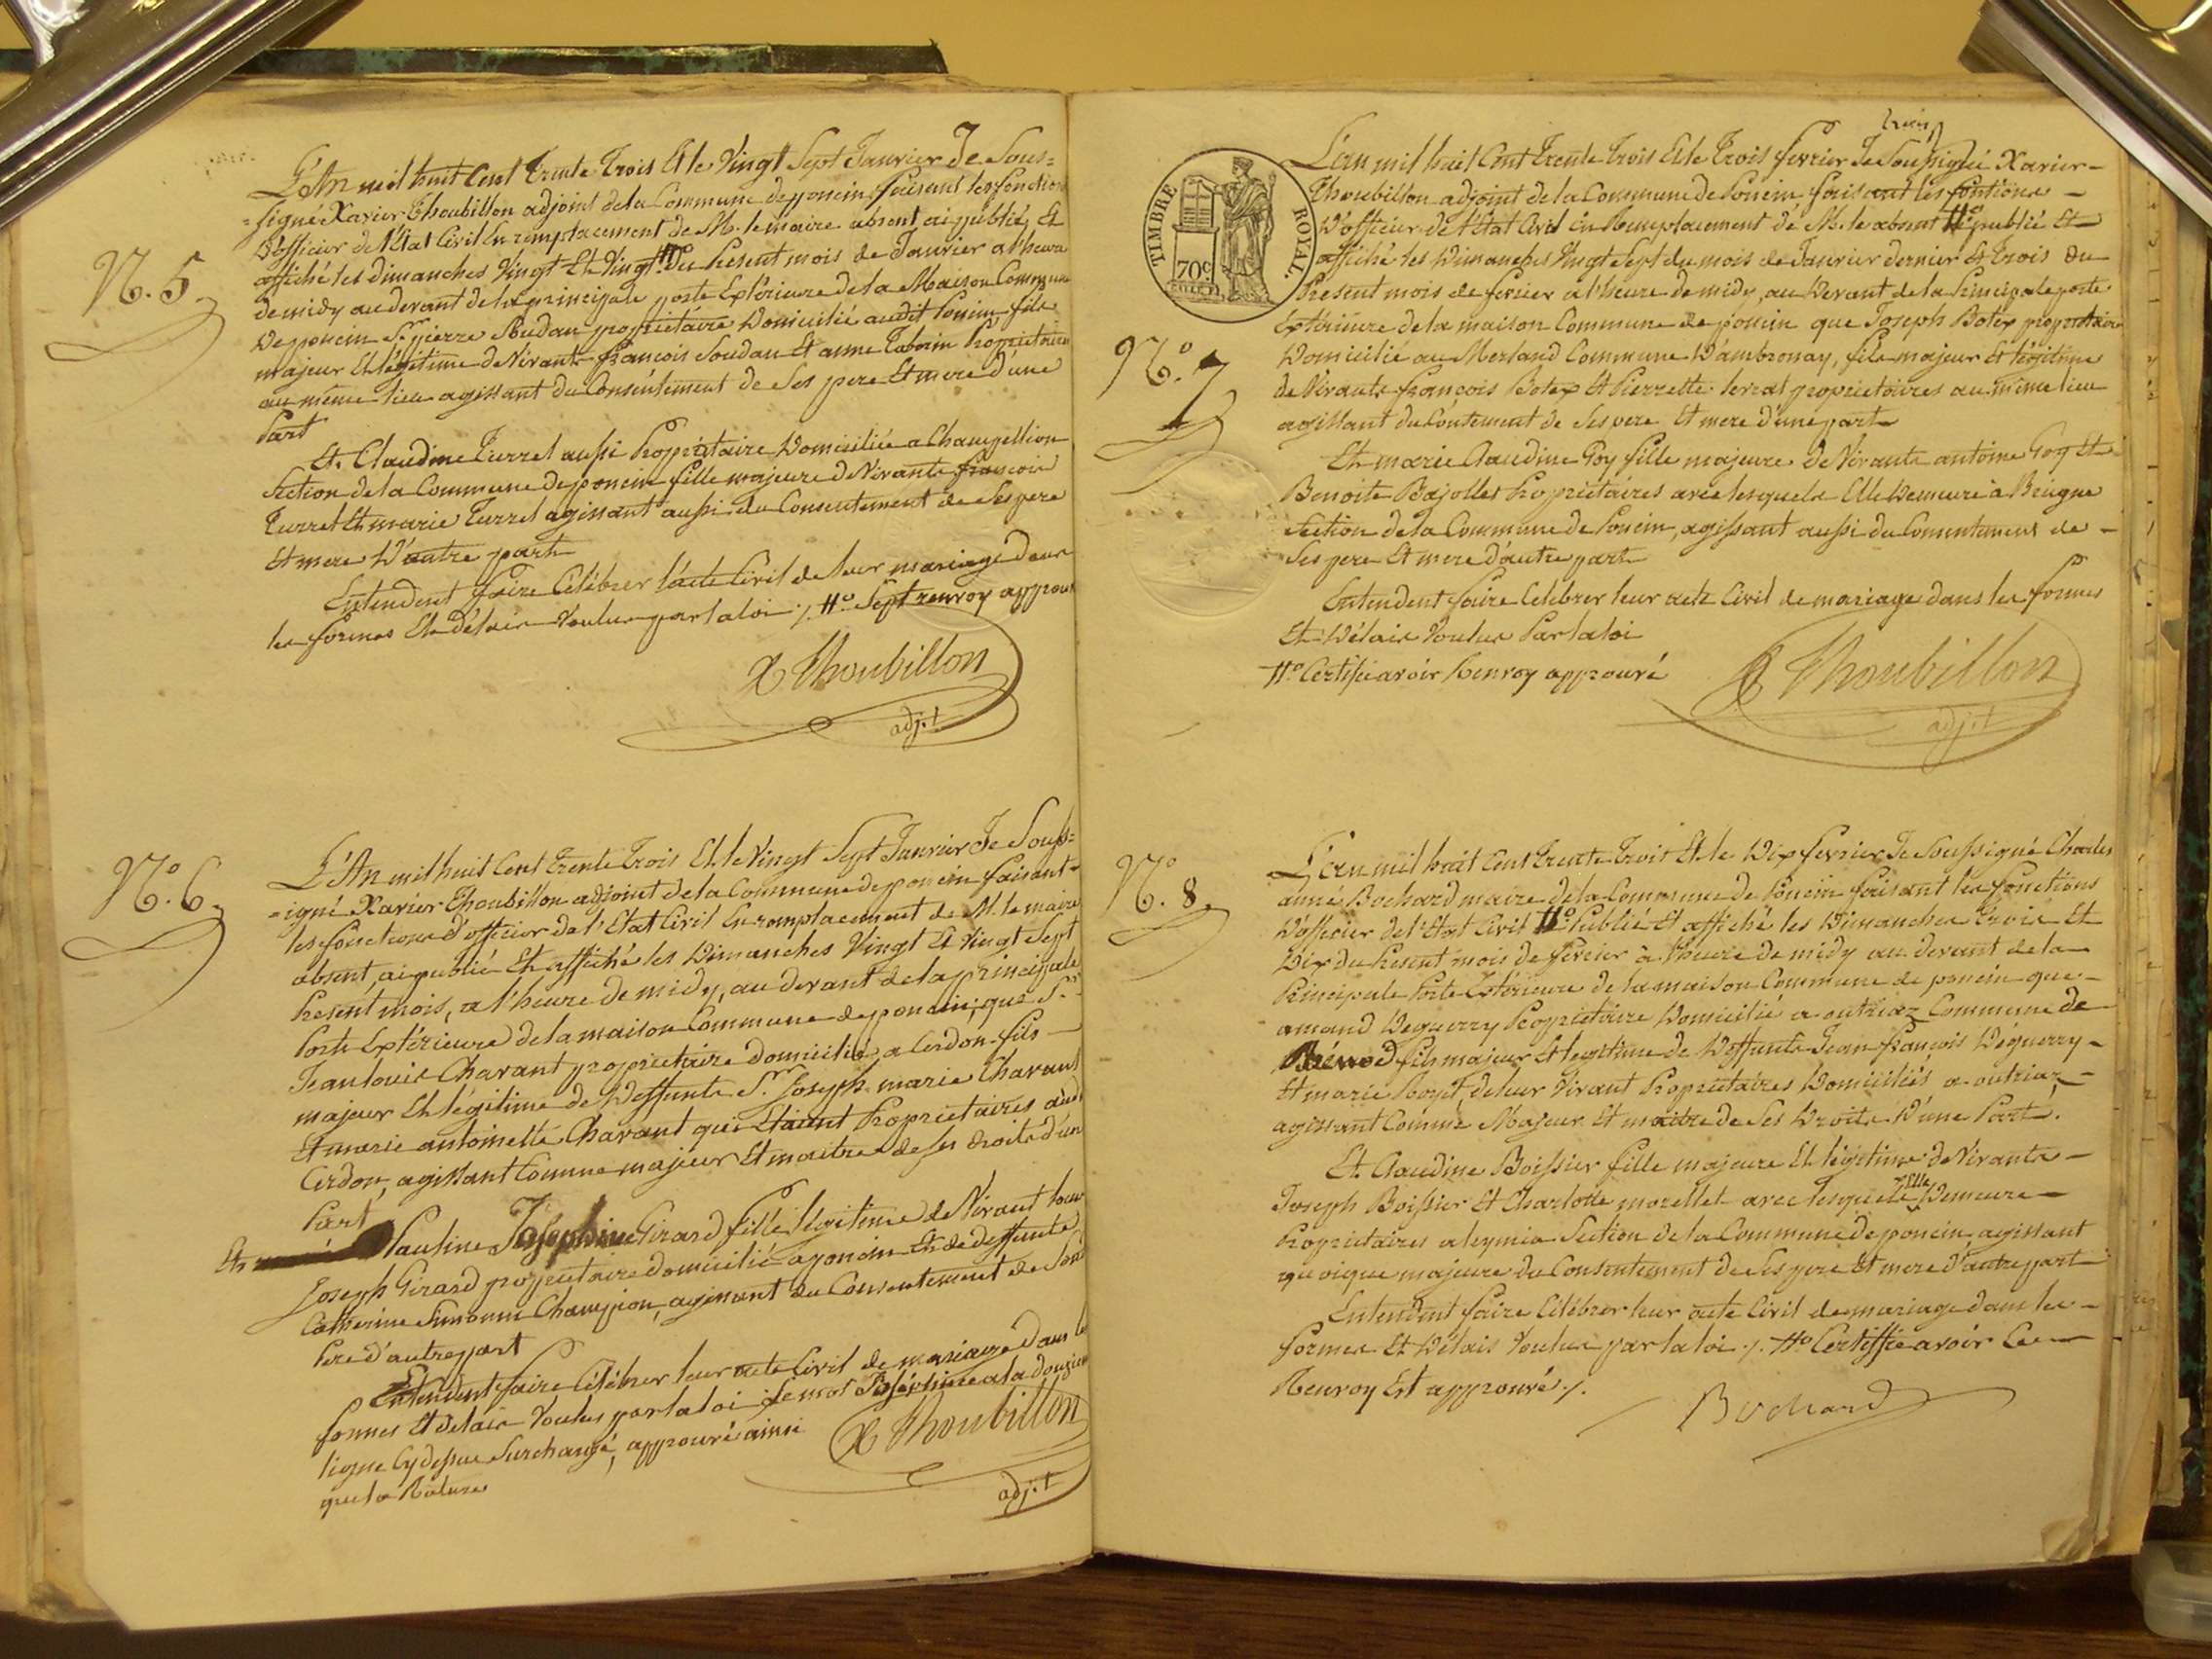 N.° 5.
L'An mil huit Cent Trente Trois Et le Vingt Sept Janvier Je Sous=
=signé Xavier Thoubillon adjoint de la Commune de poncin faisant les fonctions
D'officier de l'Etat Civil En remplacement de M. le maire absent ai publié Et
affiché les dimanches Vingt Et Vingt H° Du Present mois de Janvier a l'heure
de midy au devant de la principale porte Extérieure de la Maison Commune
De poncin Sr. pierre Soudan propriétaire Domicilié audit Poncin fils
majeur Et légitime de Vivants francois Soudan Et anne Proprietaires
au même lieu agissant du Consentement de Ses pere Et mere D'une
Part
Et Claudine Turrel aussi Propriétaire Domiciliée a Champeillion
Section de la Commune de poncin fille majeure de Vivants francois
Turrel Et marie Turrel agissant aussi du Consentement de Ses pere
Et mere D'autre part
Entendent faire Célébrer l'acte Civil de leur mariage dans
les formes Et Délais Voulus par la loi ./. H° Sept renvoy approuvé
X Thoubillon
adj.t
N.° 6.
L'An mil huit Cent Trente Trois Et le Vingt Sept Janvier Je Souss=
=igné Xavier Thoubillon adjoint de la Commune de poncin faisant
les fonctions d'officier de l'Etat Civil En remplacement de M. le maire
absent, ai publié Et affiché les Dimanches Vingt Et Vingt Sept
Present mois, a l'heure de midy, au devant de la principale
Porte Extérieure de la maison Commune de poncin; que Sr.
Jean louis Charant propriétaire domicilié a Cerdon fils
majeur Et légitime de Deffunts Sr. Joseph marie Charant
Et marie antoinette Charant qui Etaient Proprietaires audit
Cerdon, agissant Comme majeur Et maitre de ses droits d'une
Part
Et Pauline Joséphine Girard fille légitime de Vivant
Joseph Girard propriétaire domicilié a poncin Et de deffunte
Catherine Simonne Champion, agissant du Consentement de Son
Pere d'autre part
Entendent faire Célébrer leur acte Civil de mariage Dans les
formes Et délais Voulus par la loi le mot Joséphine a la douzième
ligne Cy dessus Surchargé, approuvé ainsi
que la Rature
X Thoubillon
adj.t
TIMBRE ROYAL.
70c
N.° 7
L'an mil huit Cent Trente Trois Et le Trois fevrier Je Soussigné Xavier
Thoubillon adjoint de la Commune de Poncin faisant les fonctions
D'officier de l'Etat Civil En Remplacement de M. le absent H° publié Et
affiché les Dimanches Vingt Sept du mois de Janvier dernier Et Trois du
Present mois de fevrier a l'heure de midy, au Devant de la Principale porte
Extérieure de la maison Commune de poncin que Joseph Botex propriétaire
Domicilié au Merland Commune D'ambronay, fils majeur Et légitime
de Vivants françois Botex Et Pierrette proprietaires au même lieu
agissant du Contement de Ses pere Et mere d'une part
Et marie Claudine Goy fille majeure de Vivants antoine Goy Et
Benoite Bajolles Proprietaires avec lesquels Elle Demeure à
Section de la Commune de Poncin, agissant aussi du Consentement de
Ses pere Et mere d'autre part
Entendent faire Celebrer leur acte Civil de mariage dans les formes
Et Délais Voulus Par la loi
H° Certifie avoir Renvoy approuvé
X Thoubillon
adj.t
N° 8.
L'an mil huit Cent Trente Trois Et le Dix fevrier Je Soussigné Charles
aimé Bochard maire de la Commune de Poncin faisant les fonctions
D'officier de l'Etat Civil H° Publié Et affiché les Dimanches Trois Et
Dix du Present mois de fevrier à l'heure de midy au devant de la
Principale Porte Extérieure de la maison Commune de poncin que
amand Deguerry Propriétaire Domicilié a outriaz Commune de
Brénod fils majeur Et legitime de Deffunts Jean françois Déguerry
Et marie Royet, de leur Vivant Propriétaires Domiciliés a outriaz
agissant Comme Majeur Et maitre de Ses Droits D'une Part.
Et Claudine Boissier fille majeure Et légitime de Vivants
Joseph Boissier Et Charlotte morellet avec lesquels Elle Demeure
Proprietaires a leymia Section de la Commune de poncin, agissant
quoique majeure du Consentement de Ses pere Et mere d'autre part
Entendent faire Célébrer leur acte Civil de mariage dans les
formes Et Délais Voulus par la loi ./. H° Certiffie avoir Ce
Renvoy Est approuvé ./.
Bochard